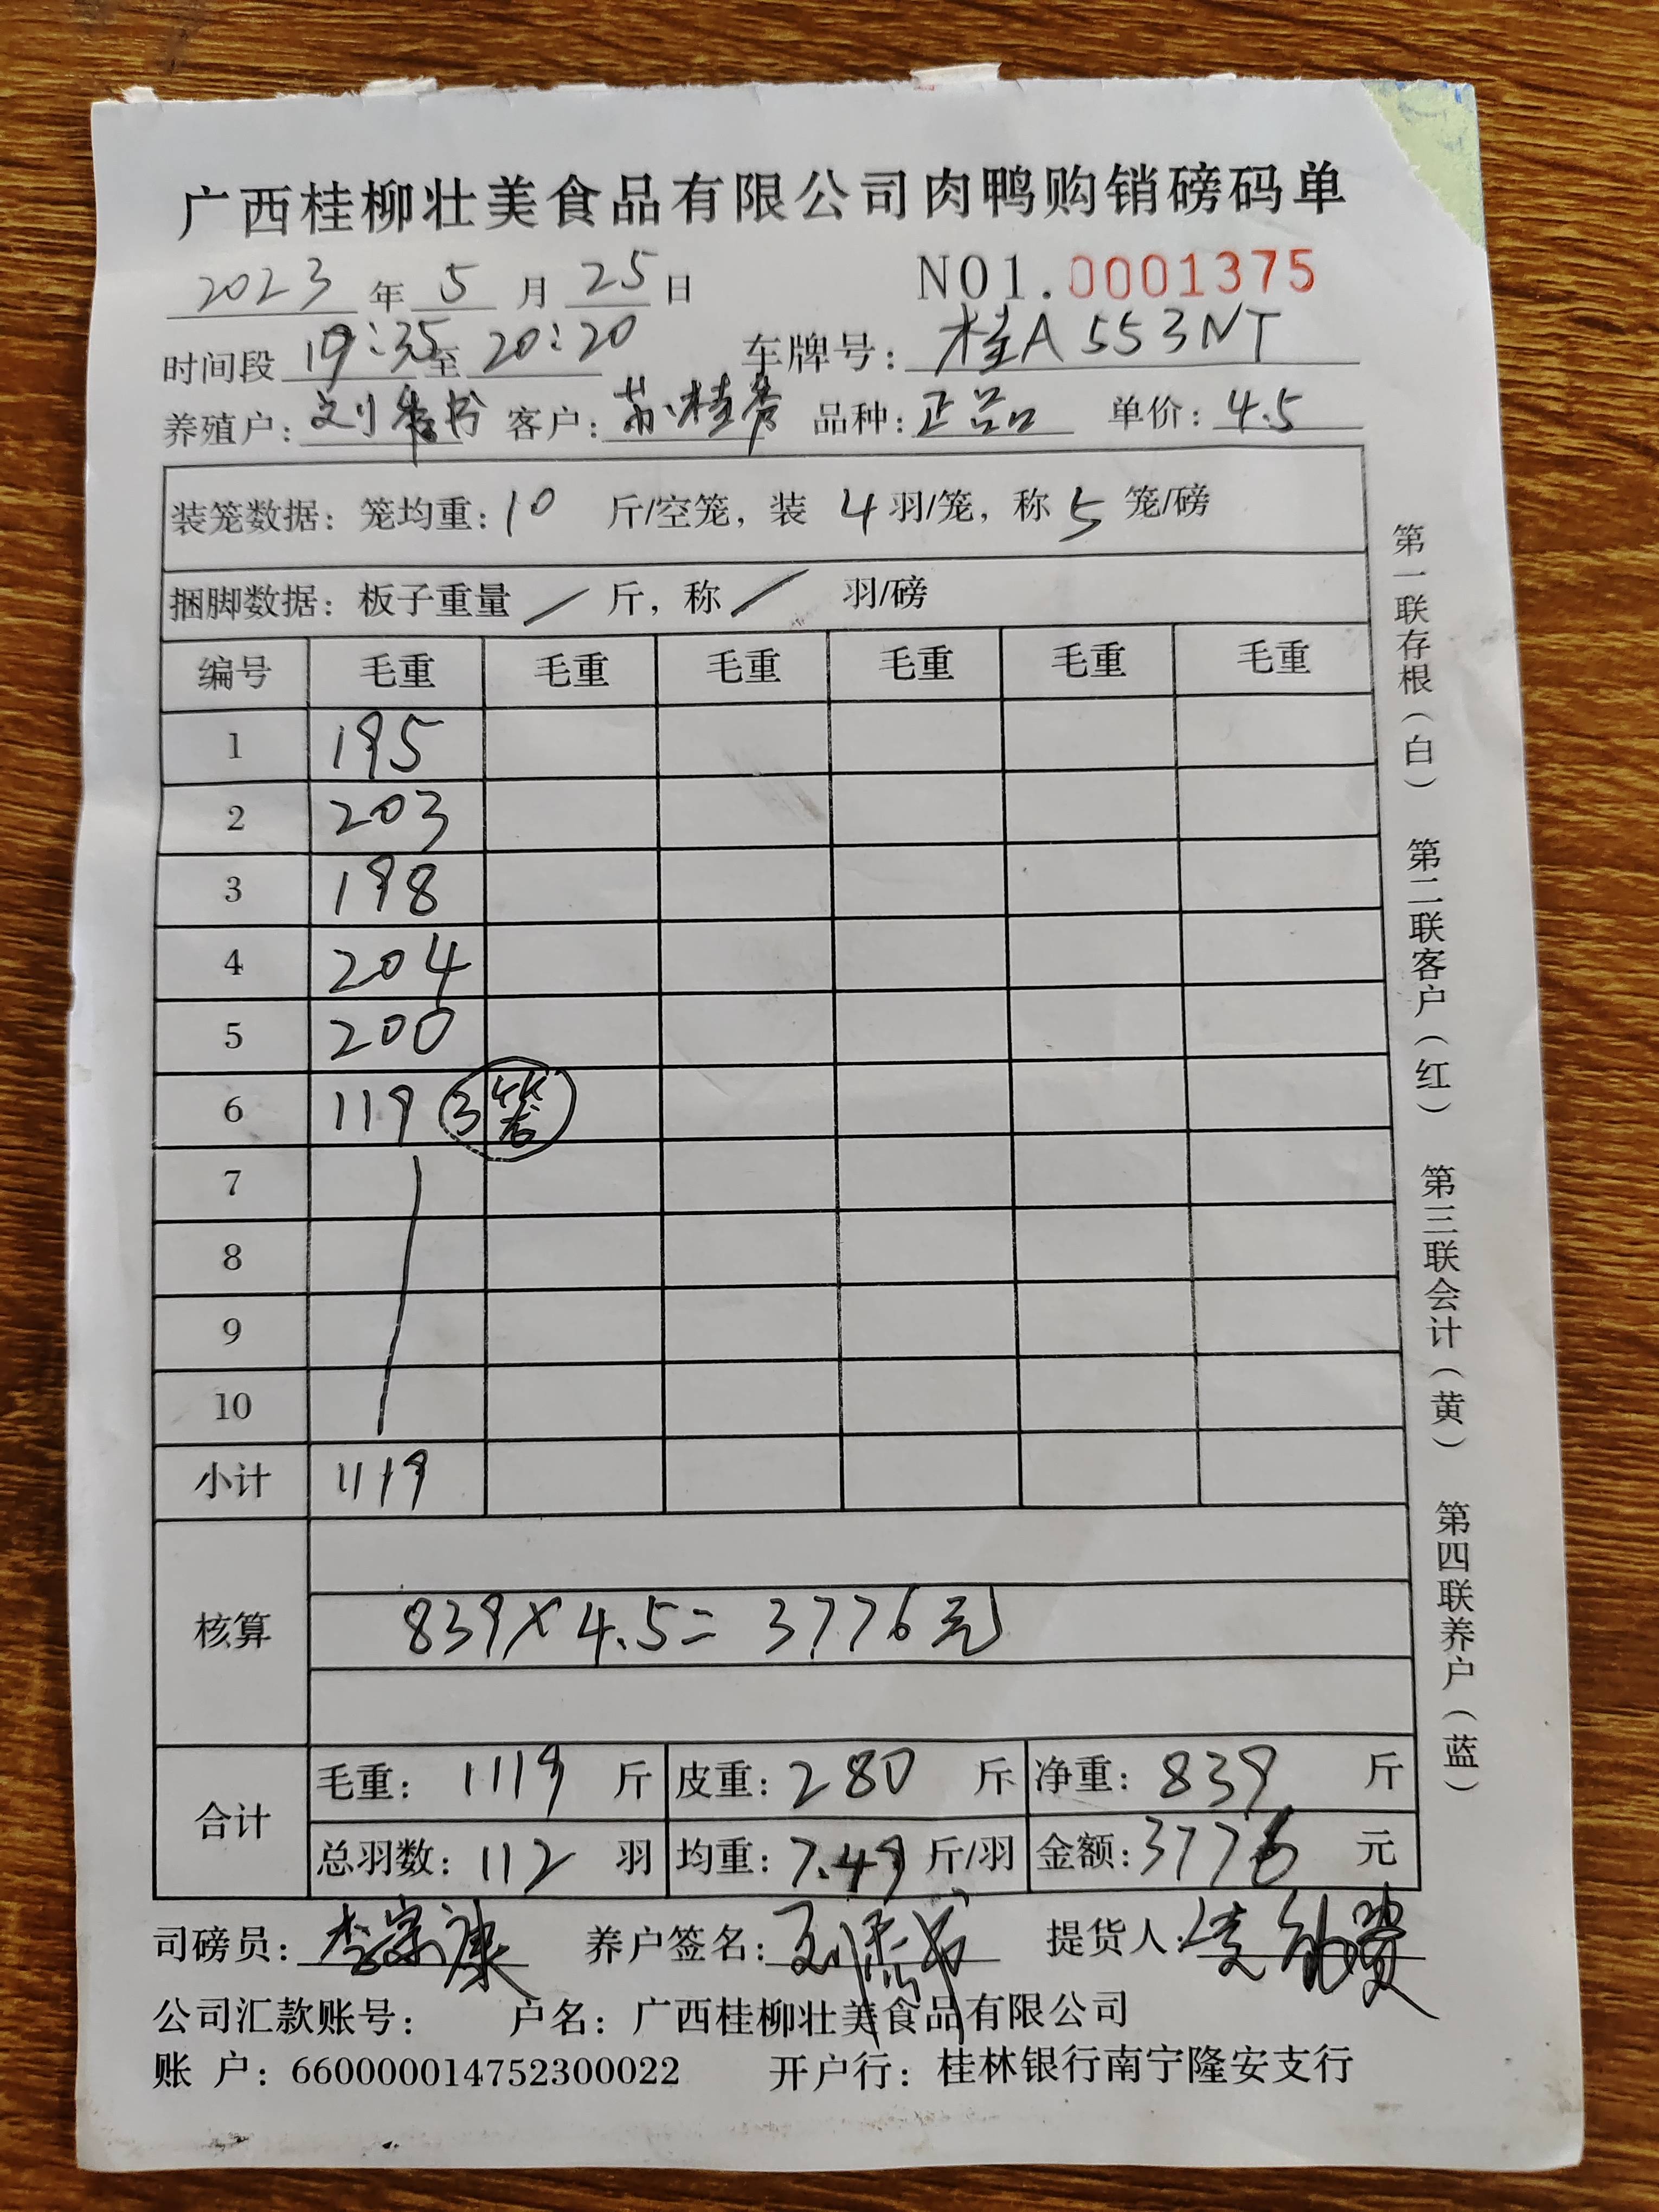 广西桂柳壮美食品有限公司肉鸭购销磅码单
2023 年 5 月 25 日 NO1.0001375
时间段 19:35 至 20:20 车牌号: 桂A553NT
养殖户: 刘 书 客户: 苏桂 品种: 正品 单价: 4.5
装笼数据: 笼均重: 10 斤/空笼, 装 4 羽/笼, 称 5 笼/磅
捆脚数据: 板子重量 / 斤, 称 / 羽/磅
编号 毛重 毛重 毛重 毛重 毛重 毛重
1 195
2 203
3 198
4 204
5 200
6 119 3笼
7
8
9
10
小计 1119
核算 839×4.5=3776元
合计 毛重: 1119 斤 皮重: 280 斤 净重: 839 斤
总羽数: 112 羽 均重: 7.49 斤/羽 金额: 3776 元
司磅员: 李宗康 养户签名: 刘 书 提货人:
公司汇款账号: 户名: 广西桂柳壮美食品有限公司
账 户: 660000014752300022 开户行: 桂林银行南宁隆安支行
第一联存根(白) 第二联客户(红) 第三联会计(黄) 第四联养户(蓝)